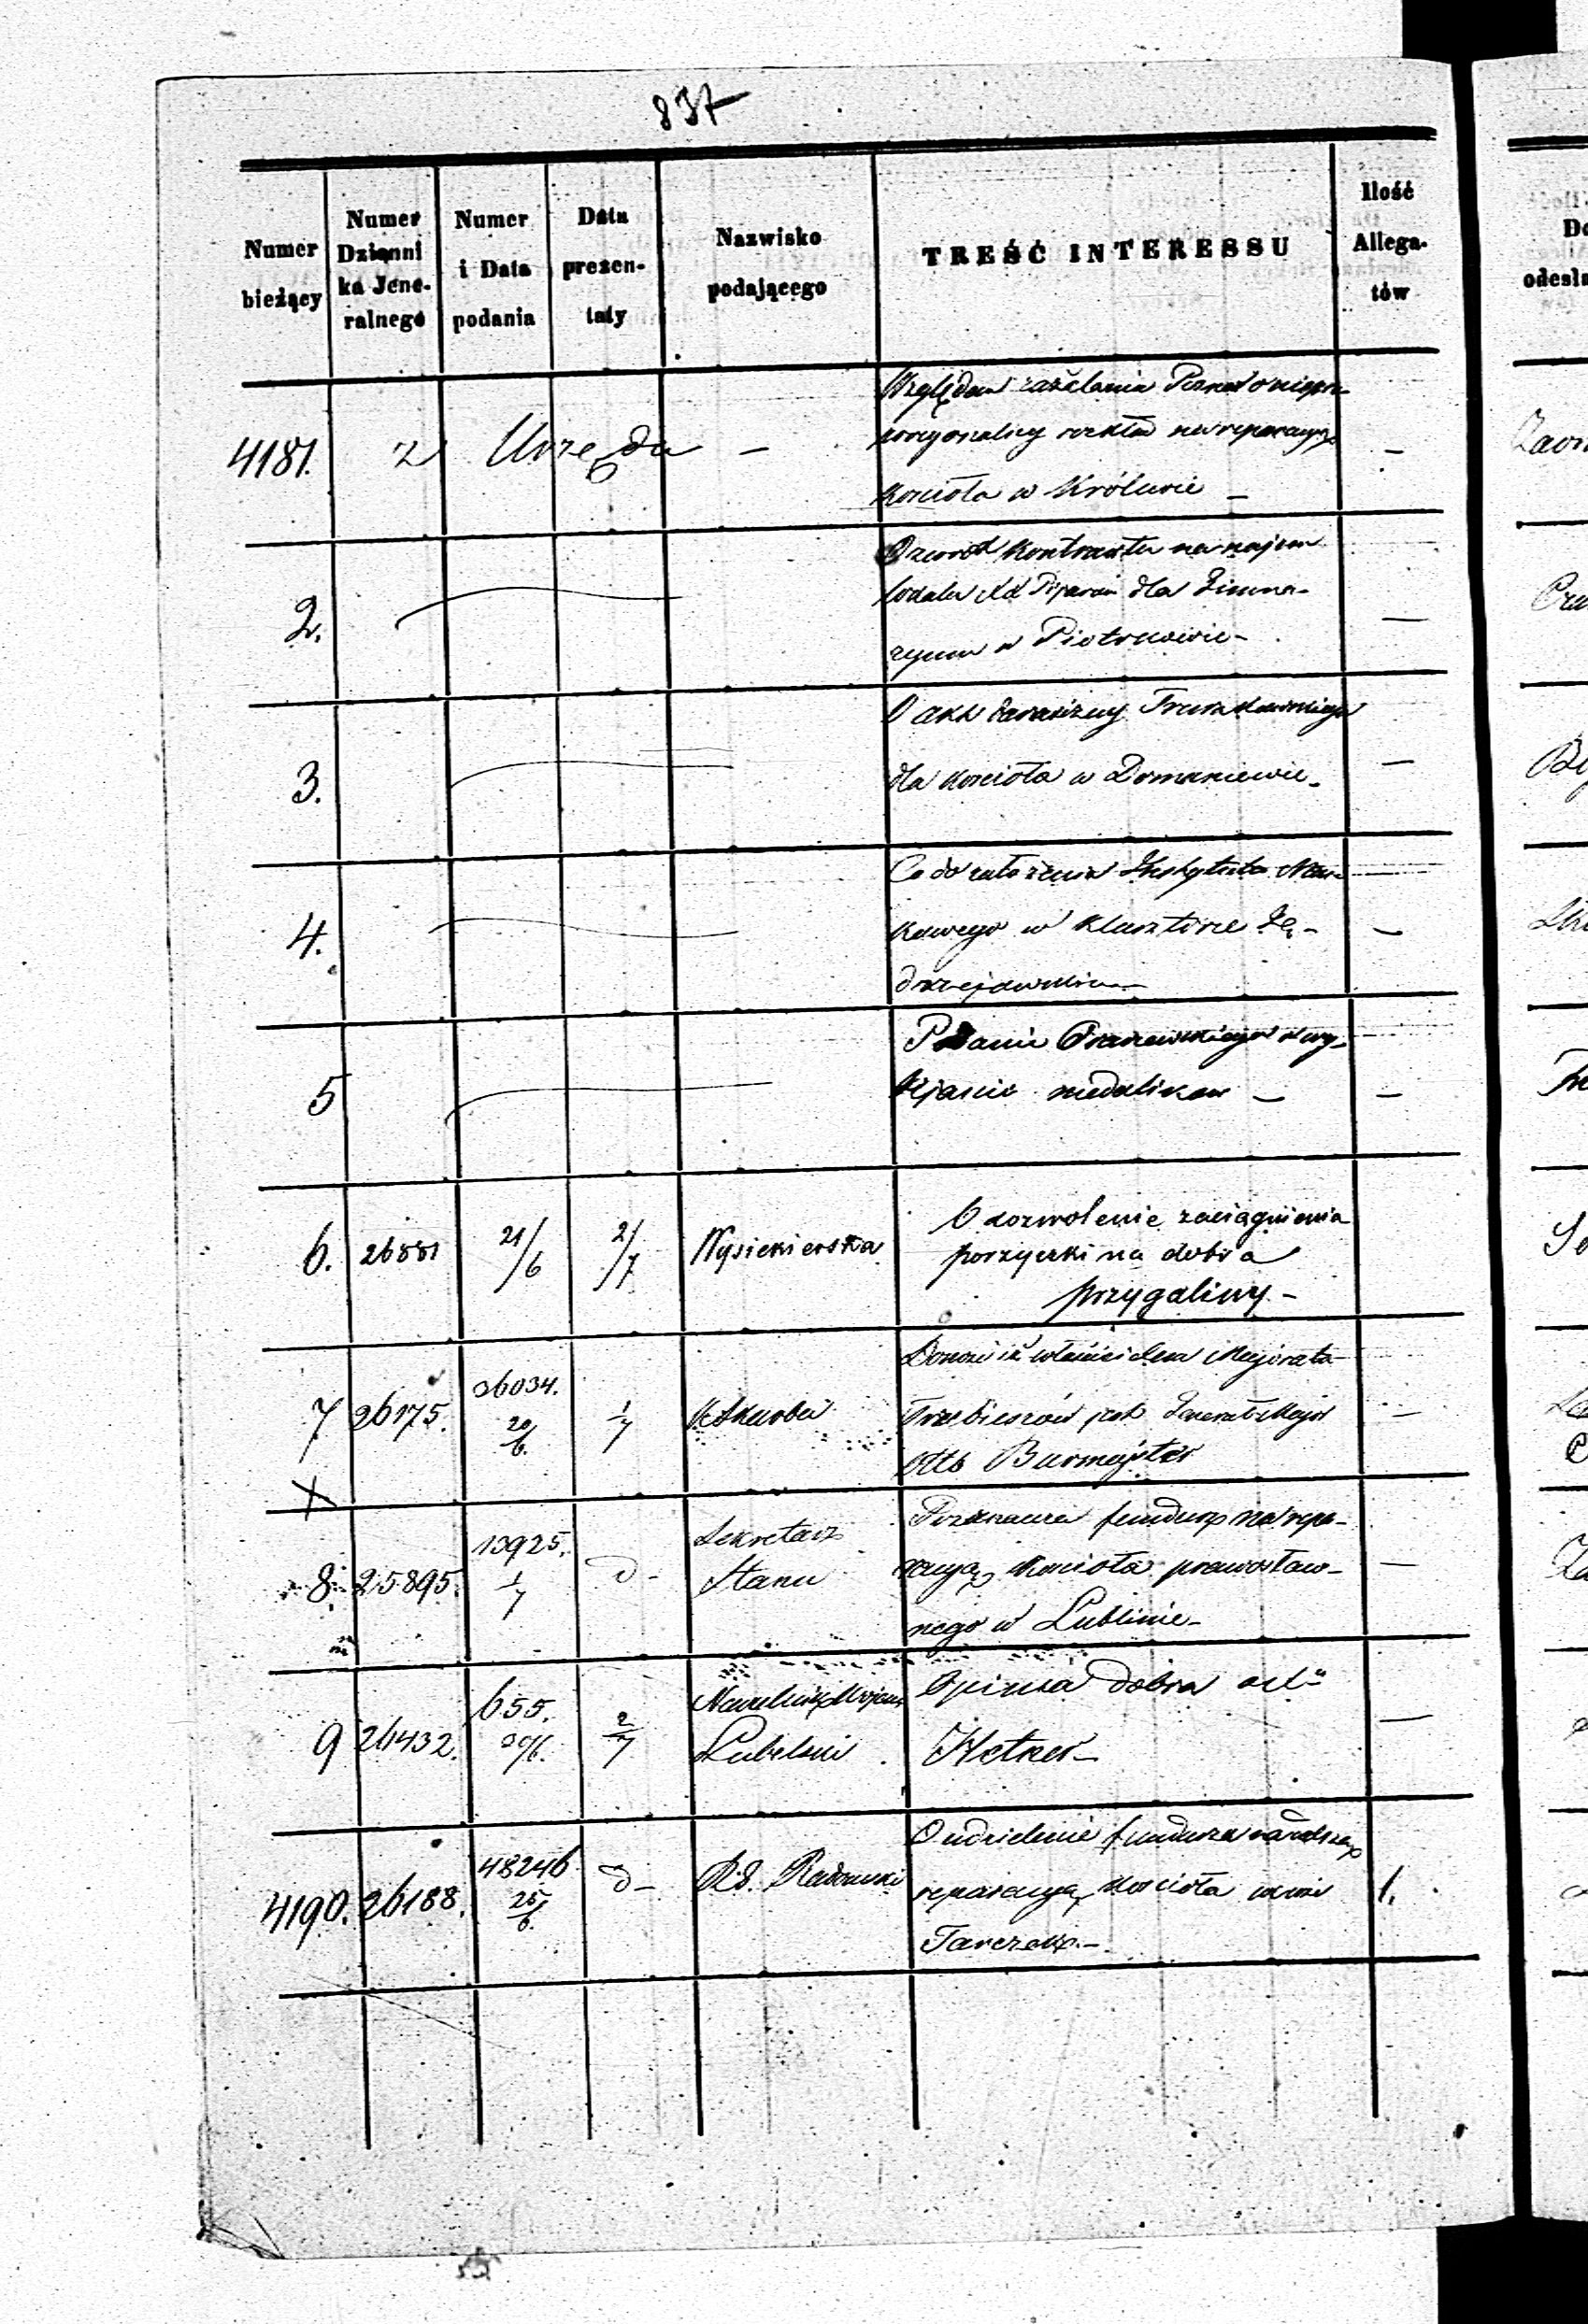 837
Numer bieżący
Numer Dzienni ka Jene- ralnego
Numer i Data podania
Data prezen- taty
Nazwisko podającego
TREŚĆ INTERESSU
Ilość Allega- tów
4181. z Urzędu —
Względem zażalenia
na reparacyą
kościoła w Królewie —
2.
O zwrot kontraktu na najem
lokalu XX Pijarów dla Gimna-
zyum w Piotrkowie —
3.
O akt darowizny
dla kościoła w Domaniewie —
4.
Co do założenia Instytutu
kowego w klasztorze Ję-
drzejowskim —
5
Podanie
medalików —
6. 26881 21/6 2/7 Wysiekierska
O dozwolenie zaciągnienia
pożyczki na dobra
przygaliny —
7 26175. 26034. 20/6. 1/7 K. Skarbu
Donosi iż właścicielem Majoratu
Trzebieszów jest Jenerał Major
Otto Burmejster
8. 25895. 13925. 1/7 d - Sekretarz
Stanu
fundusz na repa-
racyą kościoła prawosław-
nego w Lublinie —
9 26432. 655. 30/6. 2/7 Naczelnik Wojen
Lubelski
Opinia dobra od
Hetner —
4190. 26188. 48246. 25/6. d - R. G. Radomski
O udzielenie funduszu na dalszą
reparacyą kościoła we wsi
Tarczek — 1.